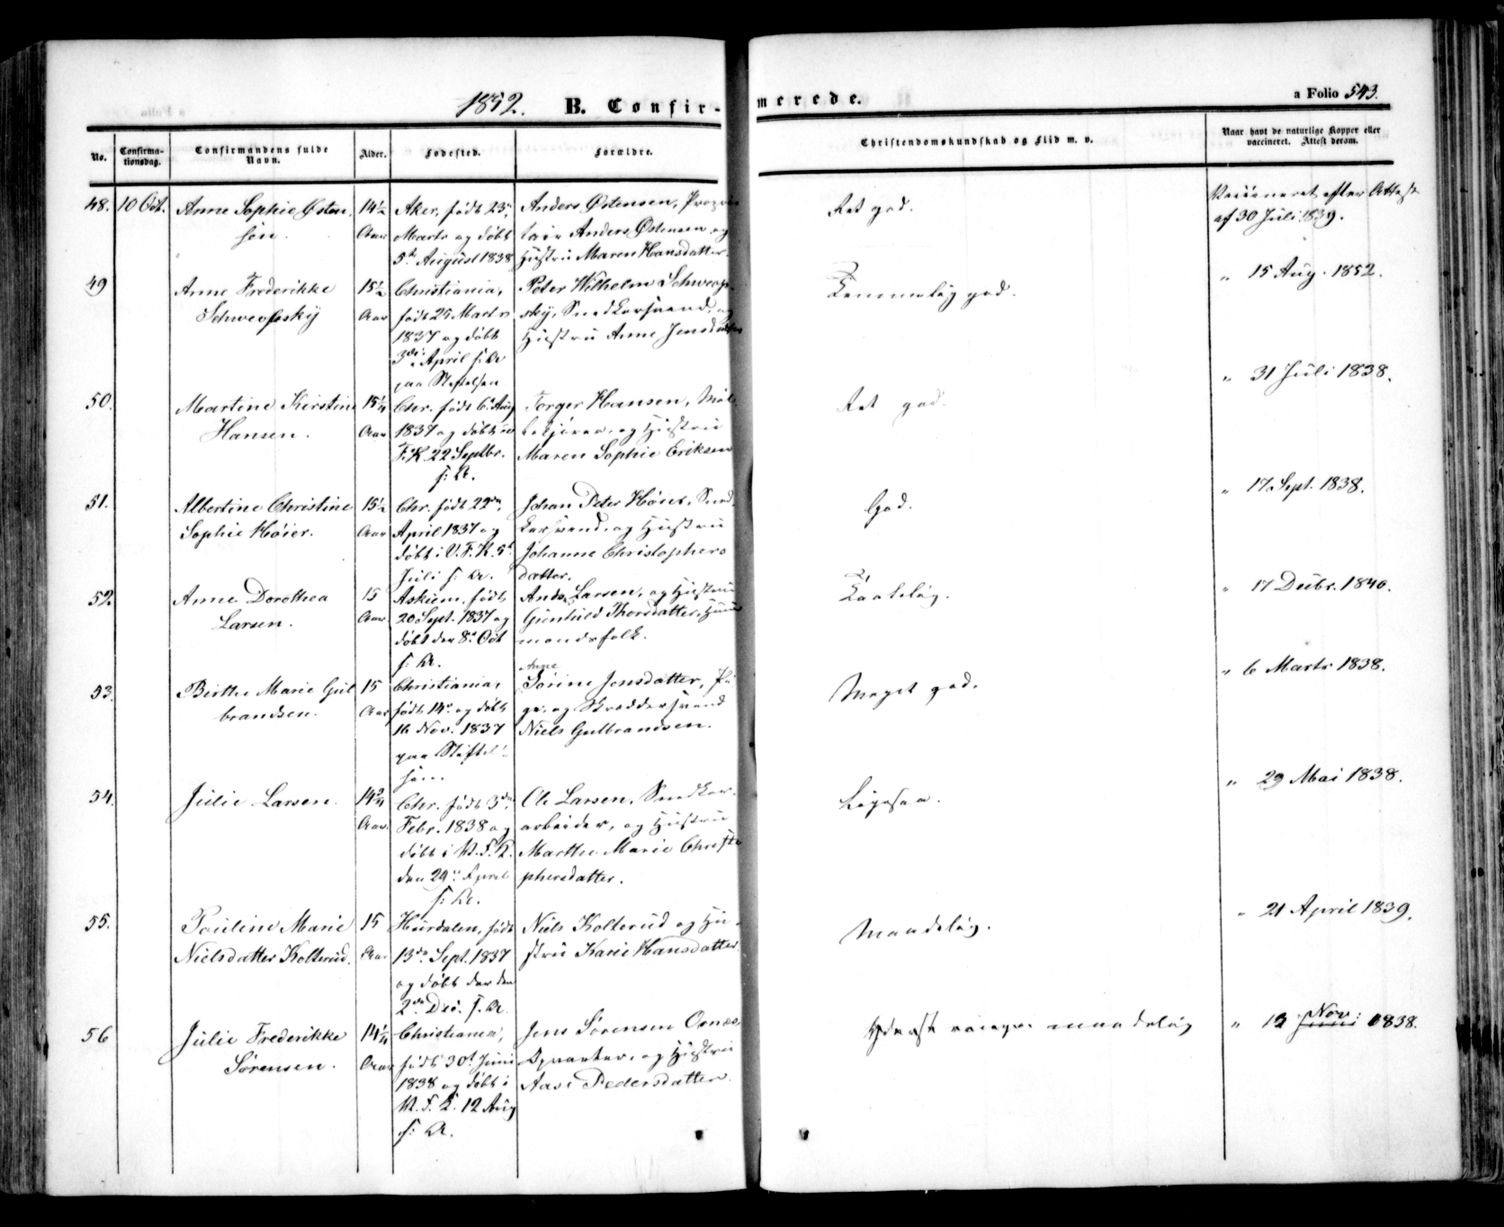 1852. B. Confir-
merede.
a Folio 543.
No.
Confirma-
tionsdag.
Confirmandens fulde
Navn.
Alder.
Fødested.
Forældre.
Christendomskundskab og Flid m. v.
Naar havt de naturlige Kopper eller
vaccineret. Attest derom.
48. 10 Oct. Anne Sophie Østen
søn.
14½
Aar
Aker, født 23de
Marts og døbt
5te August 1838
Anders Østensen,
Anders Østensen og
Hustru Maren Hansdatter.
Ret god.
Vaccineret efter Attest
af 30 Juli 1839.
49
Anne Frederikke
Schweofsky
15½
Aar
Christiania,
født 25 Marts
1837 og døbt
3die April s: A.
paa Stiftelsen
Peter Wilhelm Schweof-
sky, Snedkersvend, og
Hustru Anne Jensdatter
Temmelig god.
" 15 Aug. 1852.
50.
Martine Kirstine
Hansen.
15¼
Aar
Chr. født 6te Aug
1837 og døbt i
F. K. 22 Septbr.
s: A.
Torger Hansen,
og Hustru
Maren Sophie Eriksen
Ret god.
" 31 Juli 1838.
51.
Albertine Christine
Sophie Høier.
15½
Aar
Chr. født 22de
April 1837 og
døbt i V. F. K. 5te
Juli s: A.
Johan Peter Høier, Sned
kersvend, og Hustru
Johanne Christophers
datter.
God.
" 17 Sept. 1838.
52.
Anne Dorothea
Larsen.
15
Aar
Askim, født
20 Sept. 1837 og
døbt den 8de Oct
s: A.
Ands. Larsen, og Hustru
Gunhild Thorsdatter, Huus
mandsfolk.
Taalelig.
" 17 Decbr. 1840.
53.
Birthe Marie Gul
brandsen.
15
Aar
Christiania,
født 14de og døbt
16 Nov. 1837
paa Stiftel-
sen.
Anne
Sørine Jensdatter, Pi
ge, og Skreddersvend
Niels Gulbrandsen.
Meget god.
" 6 Marts 1838.
54.
Julie Larsen.
Aar.
Chr. født 3die
Febr. 1838 og
døbt i V. F. K.
den 29de April
s: A.
Ole Larsen, Snedker-
arbeider, og Hustru
Marthe Marie Christo
phersdatter.
Ligesaa.
" 29 Mai 1838.
55.
Pauline Marie
Nielsdatter Kolterud.
15
Aar
Høirdalen, født
13de Sept. 1837
og døbt der den
2den Dec. s. A.
Niels Kolterud og Hu-
stru Karie Hansdatter
Maadelig.
" 21 April 1839.
56
Julie Frederikke
Sørensen.
14¼
Aar
Christiania,
født 30te Juni
1838 og døbt i
V. F. K. 12 Aug
s: A.
Jens Sørensen Osnæs,
og Hustru
Aase Pedersdatter.
maadelig
Nov:
" 12 Juni 1838.